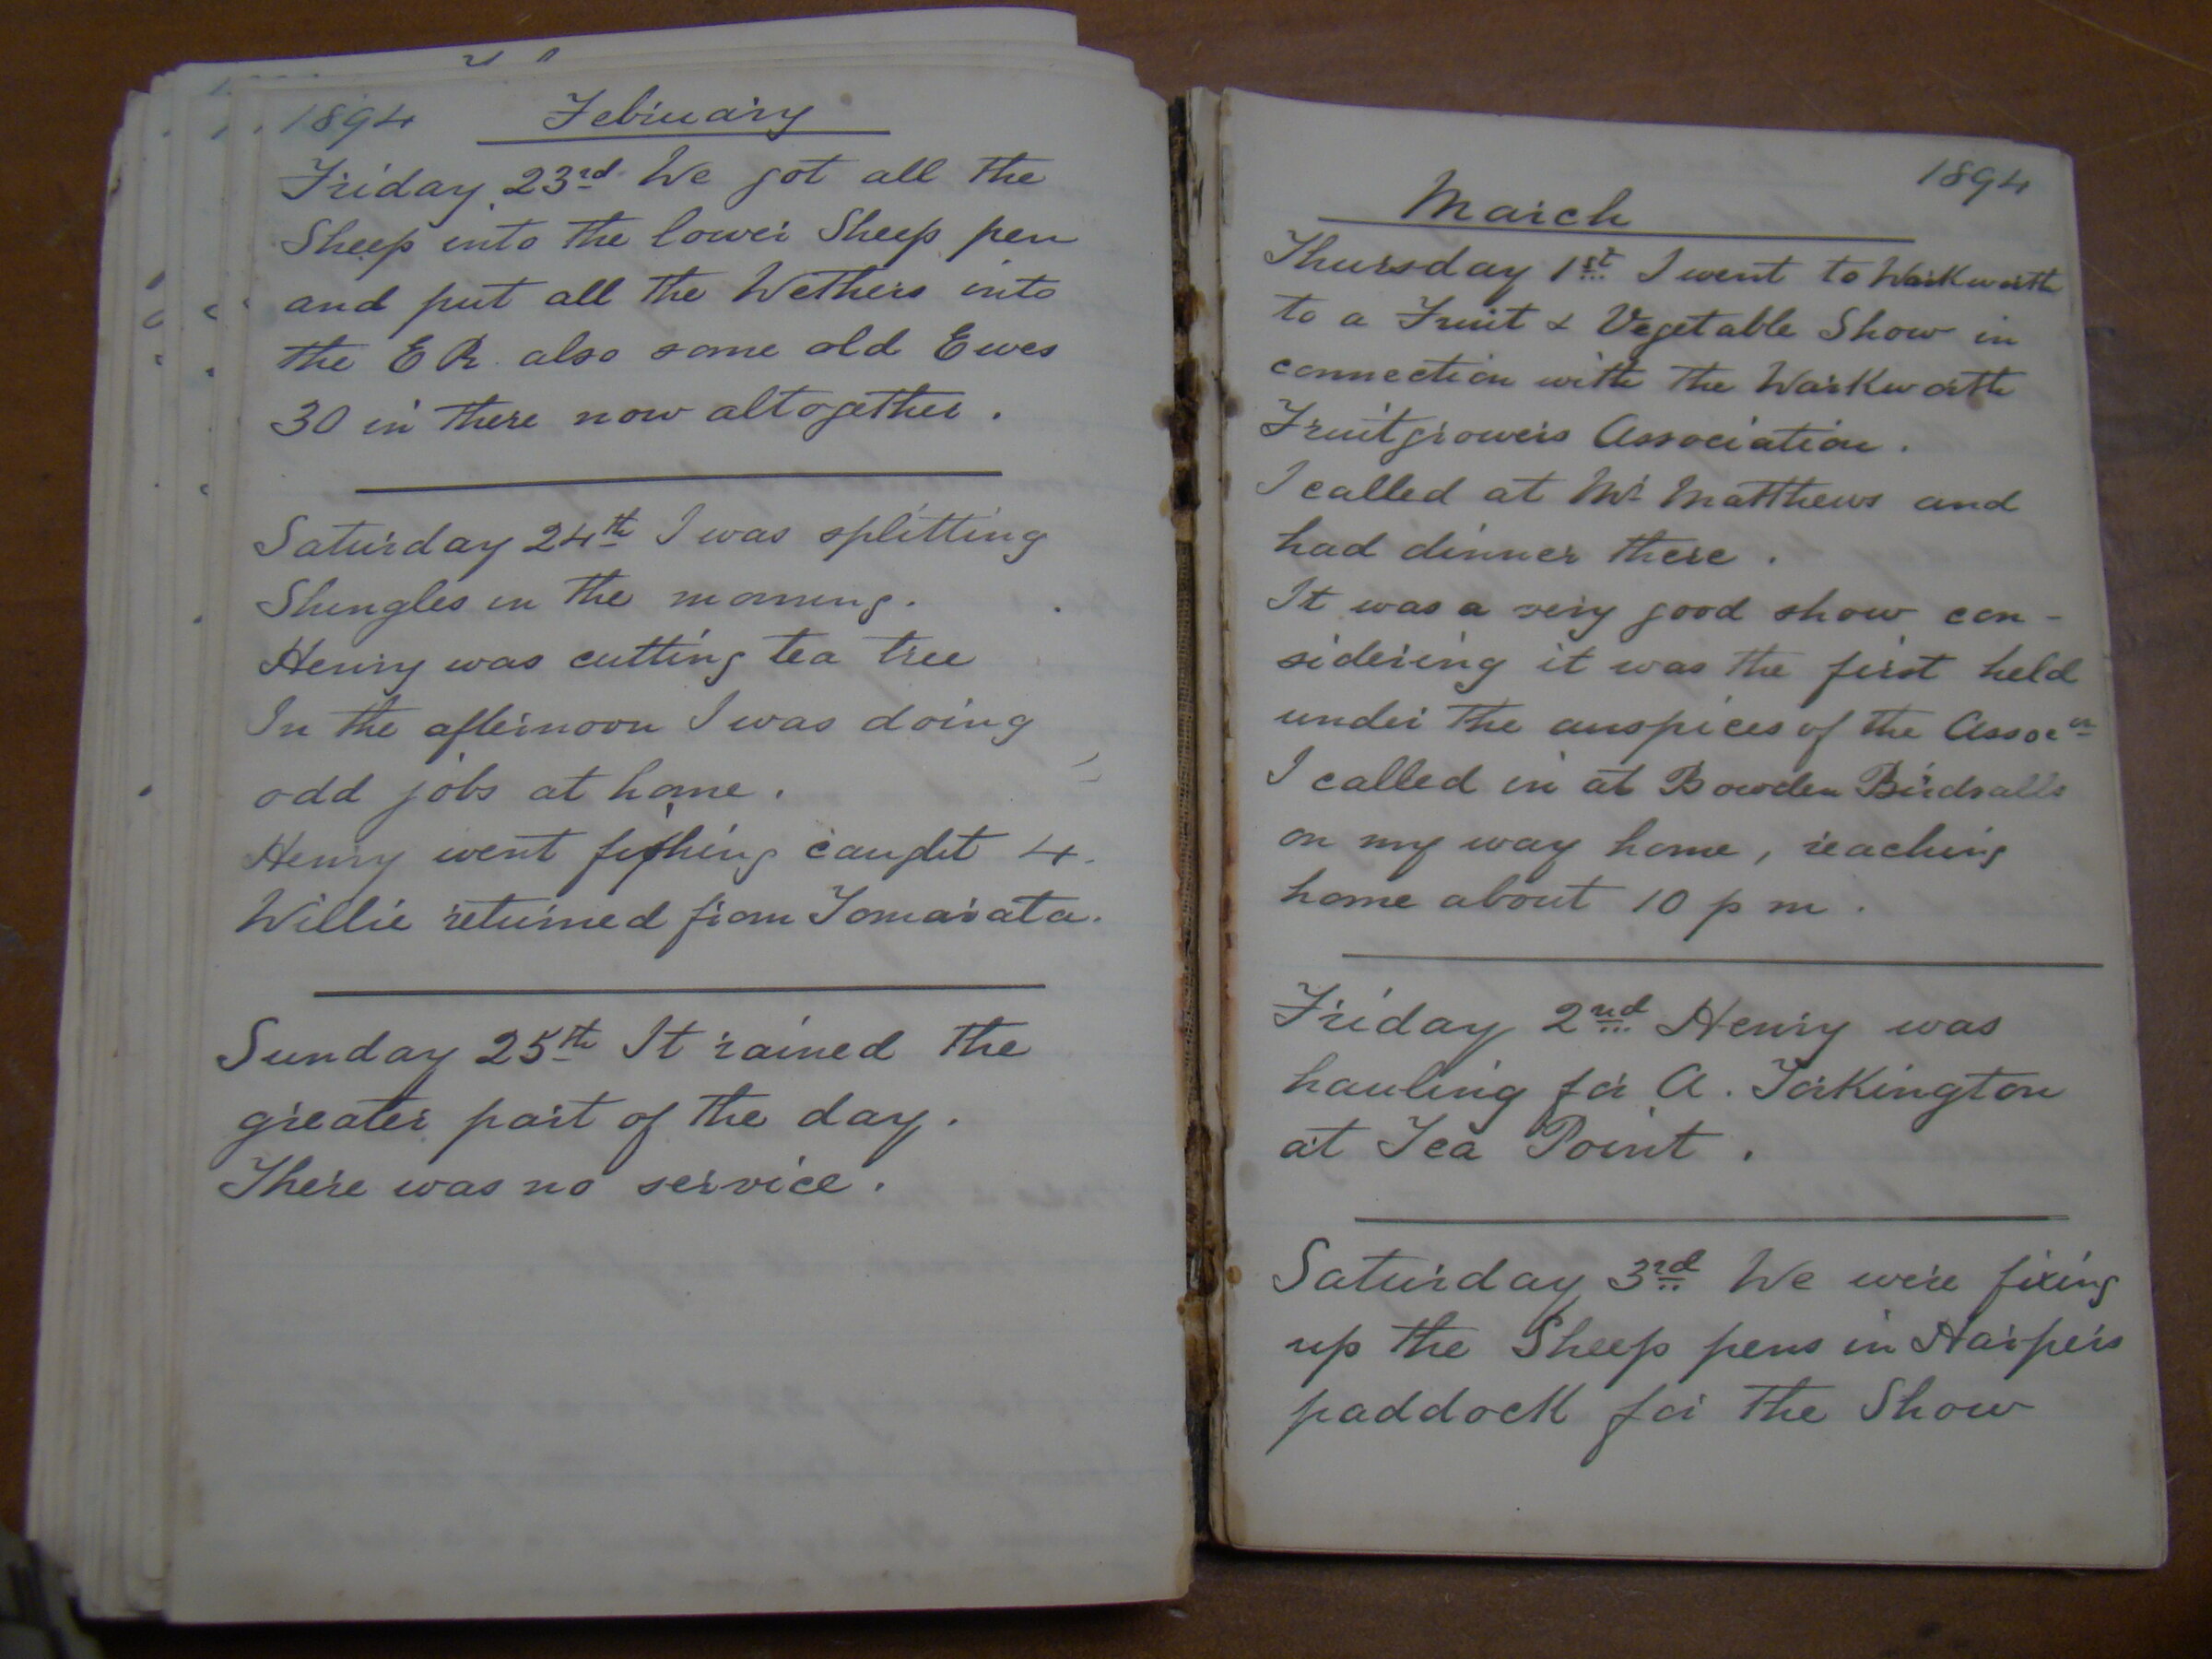 1894 February
Friday 23rd We got all the
Sheep into the lower Sheep pen
and put all the Wethers into
the E R. also some old Ewes
30 in there now altogether.
Saturday 24th I was splitting
Shingles in the morning.
Henry was cutting tea tree
In the afternoon I was doing
odd jobs at home.
Henry went fishing caught 4.
Willie returned from Tomarata.
Sunday 25th It rained the
greater part of the day.
There was no service.
1894
March
Thursday 1st I went to Warkworth
to a Fruit & Vegetable Show in
connection with the Warkworth
Fruitgrowers Association.
I called at Mr Matthews and
had dinner there.
It was a very good show con-
sidering it was the first held
under the auspices of the Assocn
I called in at Bowden Birdsalls
on my way home, reaching
home about 10 p m.
Friday 2nd Henry was
hauling for A. Torkington
at Tea Point.
Saturday 3rd We were fixing
up the Sheep pens in Harpers
paddock for the Show